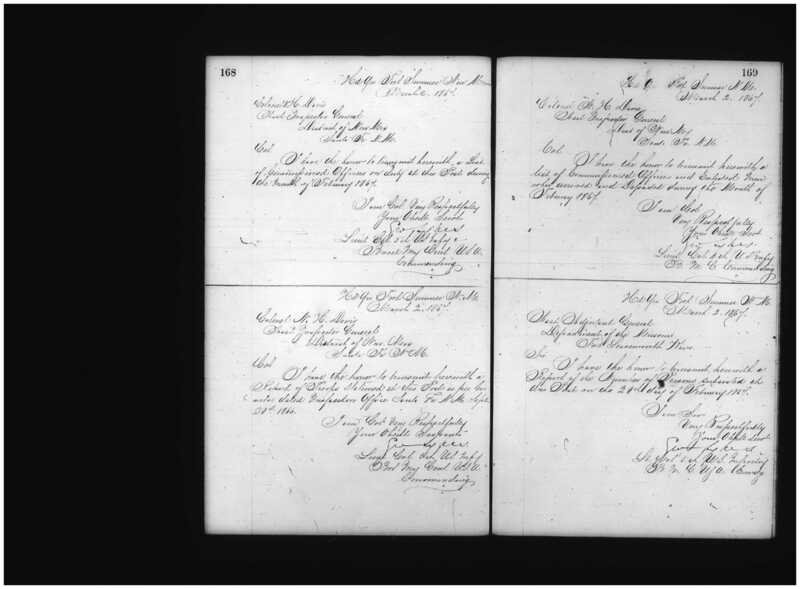 168
Hd Qrs Fort Sumner New Mexico
March 2, 1867.
Colonel N. H. Davis
Asst Inspector General
District of New Mex
Santa Fe N. M.
Col
I have the honor to transmit herewith a List
of Commissioned Officers on duty at this Post during
the Month of February 1867.
I am Col Very Respectfully
Your Obedt Servt
Geo Sykes
Lieut Col 5th U.S. Infy
Brevet Maj Genl U.S.A.
Commanding
Hd Qrs Fort Sumner N. M.
March 2, 1867.
Colonel N. H. Davis
Asst Inspector General
District of New Mex
Santa Fe N. M.
Col
I have the honor to transmit herewith a
Report of Stationed at this Post as per
dated Inspectors Office Santa Fe N. M. Sept
30th 1866.
I am Col Very Respectfully
Your Obedt Servant
Geo Sykes
Lieut Col 5th U.S. Infy
Brevet Maj Genl U.S.A.
Commanding
169
Hd Qrs Fort Sumner N. M.
March 2, 1867.
Colonel N. H. Davis
Asst Inspector General
Dist of New Mex
Santa Fe N. M.
Col
I have the honor to transmit herewith a
list of Commissioned Officers and Enlisted Men
who arrived and departed during the Month of
February 1867.
I am Col
Very Respectfully
Your Obedt Servt
Geo Sykes
Lieut Col 5th U.S. Infy
Bt M. G. Commanding
Hd Qrs Fort Sumner N. M.
March 2, 1867.
Asst Adjutant General
Department of the Missouri
Fort Leavenworth Kans.
Sir
I have the honor to transmit herewith a
Report of the Number of Persons at
this Post on the 28th day of February 1867.
I am Sir
Very Respectfully
Your Obedt Servt
Geo Sykes
Lt Col 5th U.S. Infantry
Bt M. G. U.S.A. Comdg